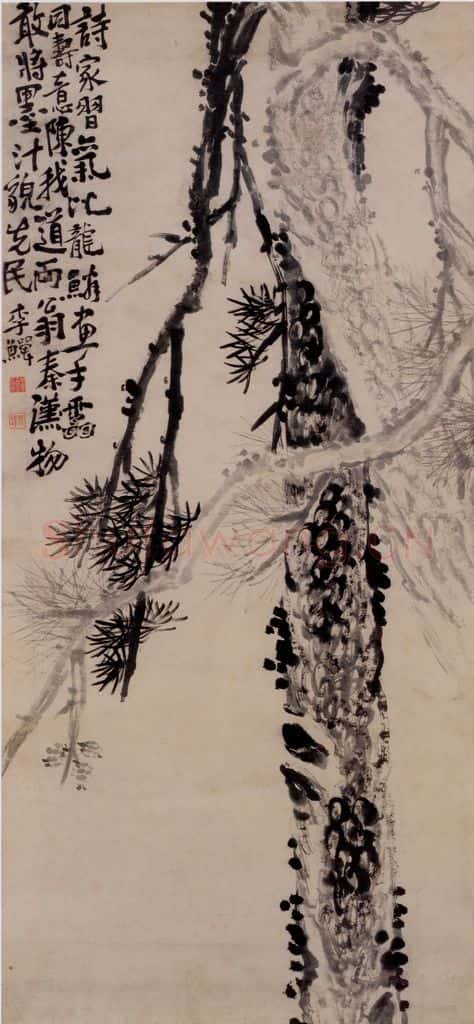 詩家習氣比龍鱗畫手雷
同壽意陳我道兩翁秦漢物
敢將墨汁貌先民
李鱓
Shuhuawang.CN